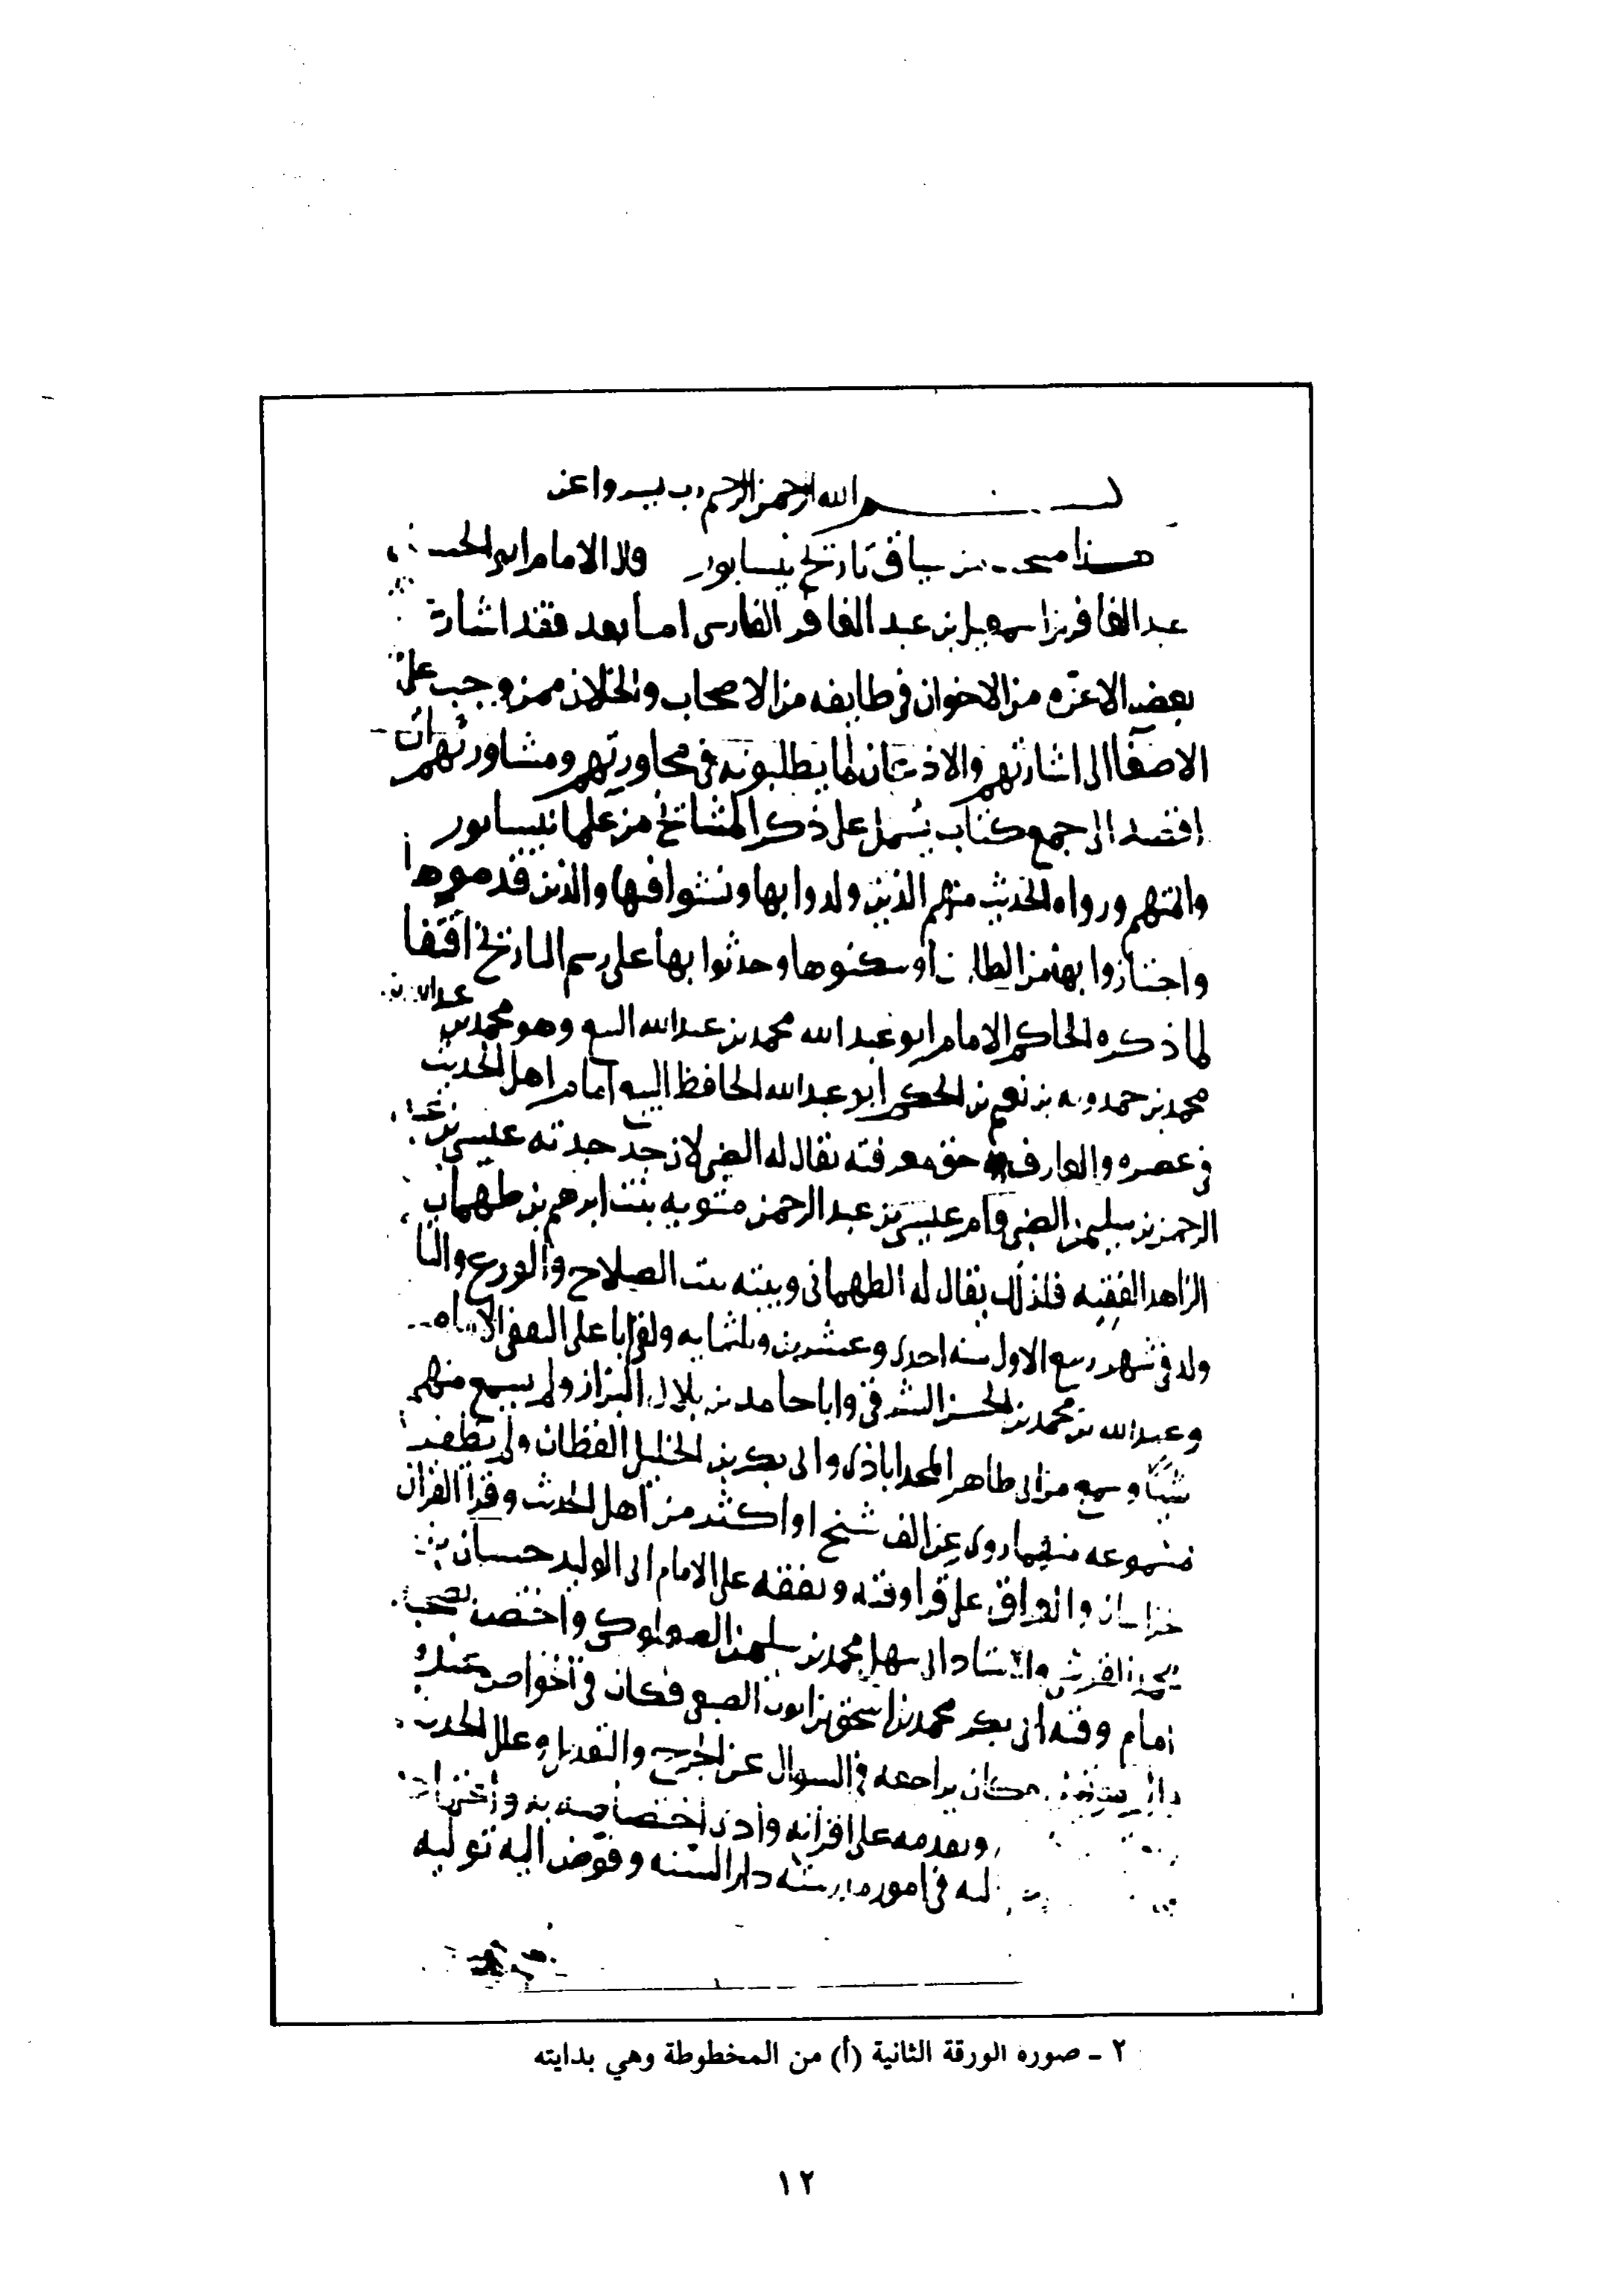 بسم الله الرحمن الرحيم رب يسر واعن
هذا منتخب من سياق تاريخ نيسابور قال الامام ابو الحسن
عبد الغافر بن اسمعيل بن عبد الغافر الفارسي اما بعد فقد اشارت
بعض الاعزه من الاخوان في طايفه من الاصحاب والخلان ممن وجب علي
الاصغا الى اشارتهم والاذعان لما يطلبونه في محاورتهم ومشاورتهم ان
اقصد الى جمع كتاب يشمل على ذكر المشايخ من علما نيسابور
وايمتهم ورواه الحديث منهم الذين ولدوا بها ونشوا فيها والذين قدموها
واجتازوا بها من الطارين او سكنوها وحدثوا بها على رسم التاريخ اقتفا
لما ذكره الحاكم الامام ابو عبد الله محمد بن عبد الله البيع وهو محمد بن عبد الله بن
محمد بن حمدويه بن نعيم بن الحكم ابو عبد الله الحافظ البيع امام اهل الحديث
في عصره والعارف به حق معرفته يقال له الضبي لان جد جدته عيسى بن عبد
الرحمن بن سليمن الضبي وام عيسى بن عبد الرحمن متويه بنت ابرهيم بن طهمان
الزاهد الفقيه فلذلك يقال له الطهماني وبيته بيت الصلاح والورع والتا
ولد في شهر ربيع الاول سنه احدى وعشرين وثلثمايه ولقي ابا علي الثقفي
وعبد الله بن محمد بن الحسن الشرقي وابا حامد بن بلال البزاز ولم يسمع منهم
شيئا وسمع من ابي طاهر المحمداباذي وابي بكر بن الخليل القطان ولم يظفر
بمسموعه منهما روى عن الف شيخ او اكثر من اهل الحديث وقرا القران
بخراسان والعراق على قرا وقته وتفقه على الامام ابي الوليد حسان بن
محمد القرشي والاستاد ابي سهل محمد بن سليمن الصعلوكي واختص بصحبه
امام وقته ابي بكر محمد بن اسحق بن ايوب الصبغي فكان في الخواص عنده
فكان يراجعه في السوال عن الجرح والتعديل وعلل الحديث
ويقدمه على اقرانه وادى اختصاصه به
اليه في امور مدرسته دار السنه وفوض اليه توليه
٢ - صوره الورقة الثانية (أ) من المخطوطة وهي بدايته
١٢